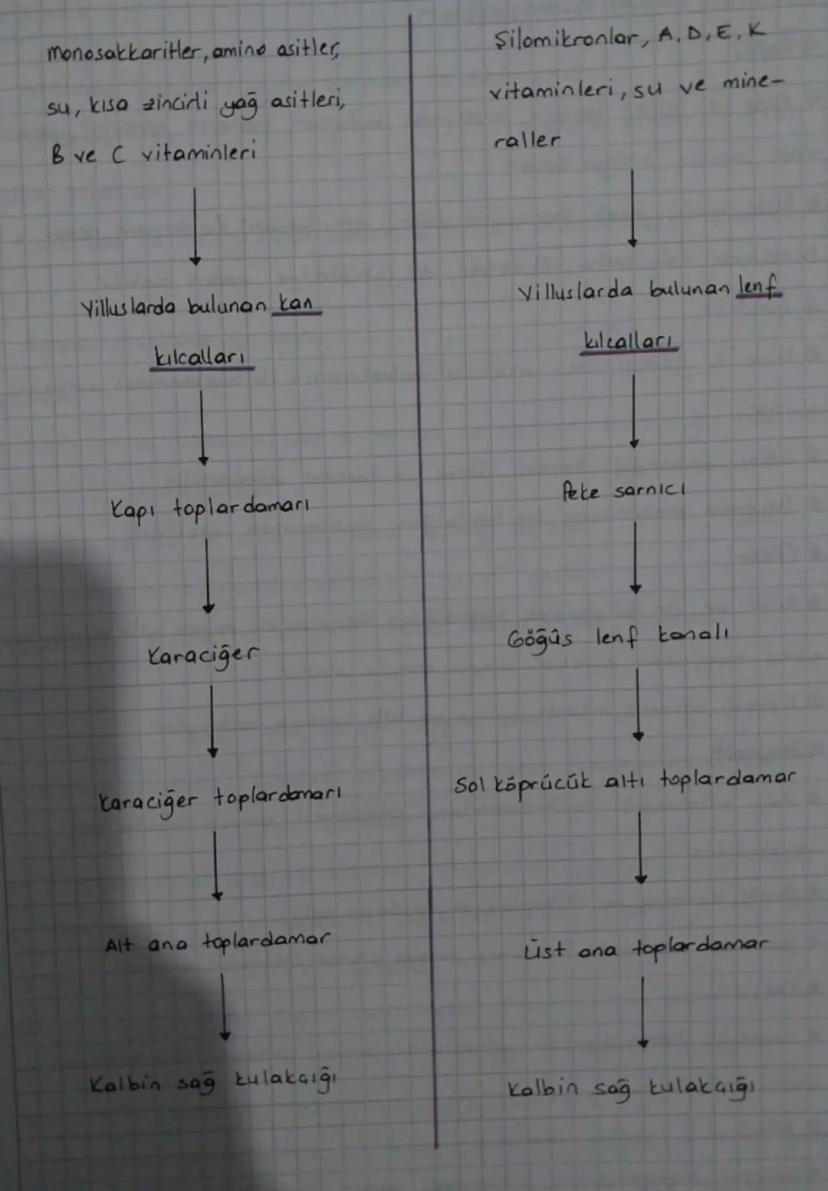 monosakkaritler, amino asitler,
su, kısa zincirli yağ asitleri,
B ve C vitaminleri
Villuslarda bulunan kan
kılcalları
Kapı toplardamarı
Karaciğer
Karaciğer toplardamarı
Alt ana toplardamar
Kalbin sağ kulakçığı
Şilomikronlar, A, D, E, K
vitaminleri, su ve mine-
raller
Villuslarda bulunan lenf
kılcalları
Peke sarnıcı
Göğüs lenf kanalı
Sol köprücük altı toplardamar
Üst ana toplardamar
Kalbin sağ kulakçığı